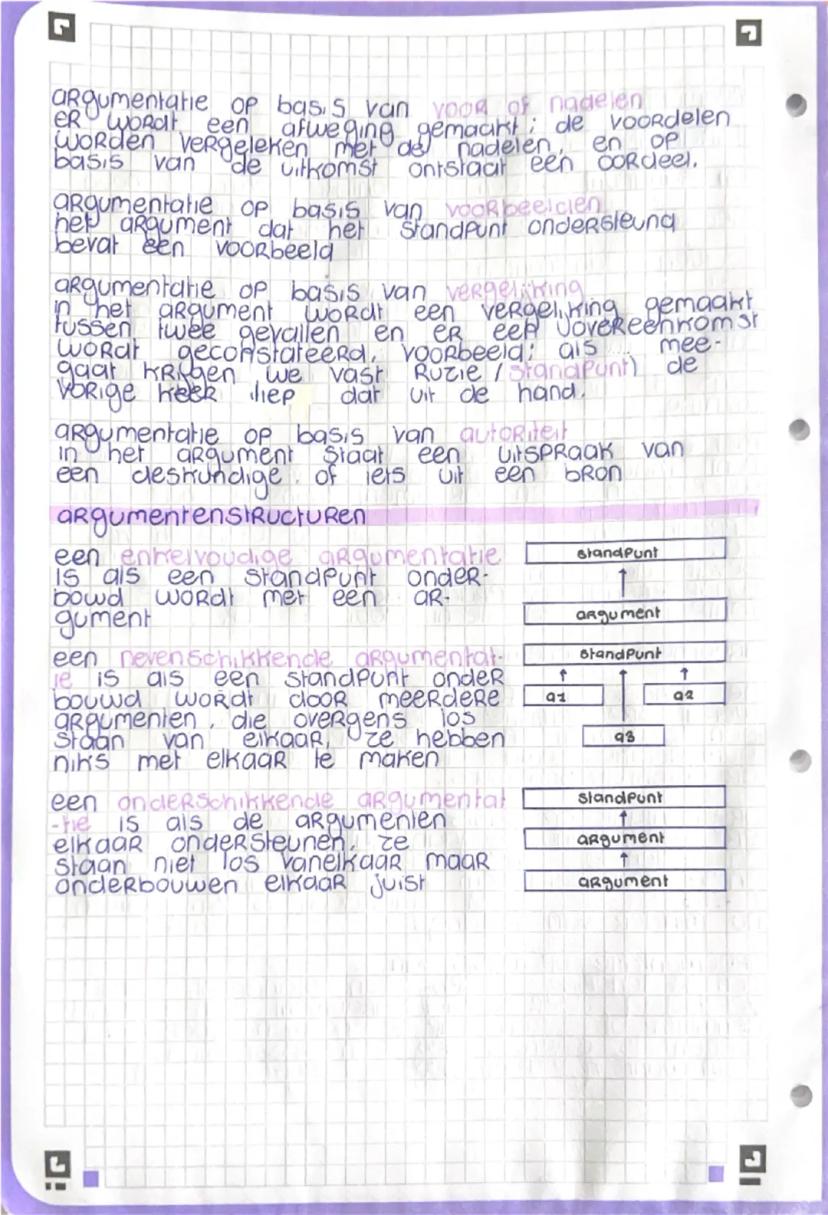 argumentatie op basis van voor of nadelen
er wordt een afweging gemaakt; de voordelen
worden vergeleken met de nadelen, en op
basis van de uitkomst ontstaat een oordeel.
argumentatie op basis van voorbeelden
het argument dat het standpunt ondersteund
bevat een voorbeeld
argumentatie op basis van vergelijking
in het argument wordt een vergelijking gemaakt
tussen twee gevallen en er een overeenkomst
wordt geconstateerd, voorbeeld: als ... mee-
gaat krijgen we vast ruzie (standpunt) de
vorige keer liep dat uit de hand.
argumentatie op basis van autoriteit
in het argument staat een uitspraak van
een deskundige of iets uit een bron
argumentenstructuren
een enkelvoudige argumentatie
is als een standpunt onder-
bowd wordt met een ar-
gument
standpunt
argument
een nevenschikkende argumentat-
ie is als een standpunt onder
bouwd wordt door meerdere
argumenten, die overgens los
staan van elkaar, ze hebben
niks met elkaar te maken
standpunt
a1
a2
a3
een onderschikkende argumentat
-tie is als de argumenten
elkaar ondersteunen, ze
staan niet los vanelkaar maar
onderbouwen elkaar juist
standpunt
argument
argument